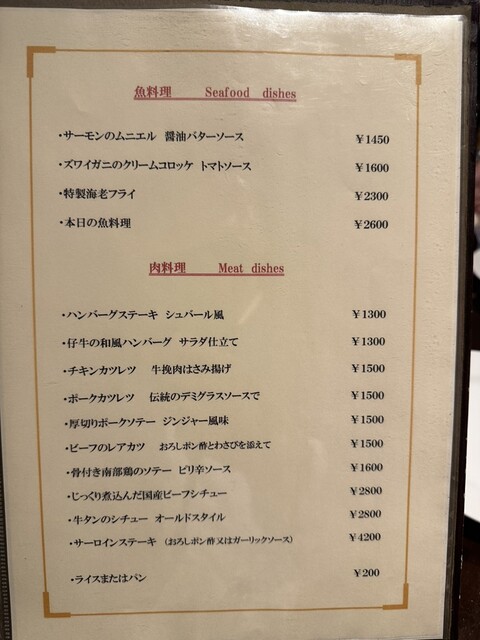 魚料理 Seafood dishes
・サーモンのムニエル 醤油バターソース ¥1450
・ズワイガニのクリームコロッケ トマトソース ¥1600
・特製海老フライ ¥2300
・本日の魚料理 ¥2600
肉料理 Meat dishes
・ハンバーグステーキ シュバール風 ¥1300
・仔牛の和風ハンバーグ サラダ仕立て ¥1300
・チキンカツレツ 牛挽肉はさみ揚げ ¥1500
・ポークカツレツ 伝統のデミグラスソースで ¥1500
・厚切りポークソテー ジンジャー風味 ¥1500
・ビーフのレアカツ おろしポン酢とわさびを添えて ¥1500
・骨付き南部鶏のソテー ピリ辛ソース ¥1600
・じっくり煮込んだ国産ビーフシチュー ¥2800
・牛タンのシチュー オールドスタイル ¥2800
・サーロインステーキ (おろしポン酢又はガーリックソース) ¥4200
・ライスまたはパン ¥200